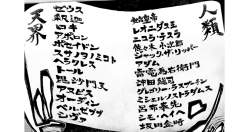 天界
ゼウス
釈迦
ロキ
アポロン
ポセイドン
スサノヲ
ヘラクレス
トール
毘沙門天
アヌビス
オーディン
ベルゼブブ
シヴァ
人類
始皇帝
レオニダス王
佐々木小次郎
ジャック・ザ・リッパー
アダム
雷電為右衛門
沖田総司
グリゴリー・ラスプーチン
ミシェル・ノストラダムス
呂布奉先
シモ・ヘイヘ
坂田金時